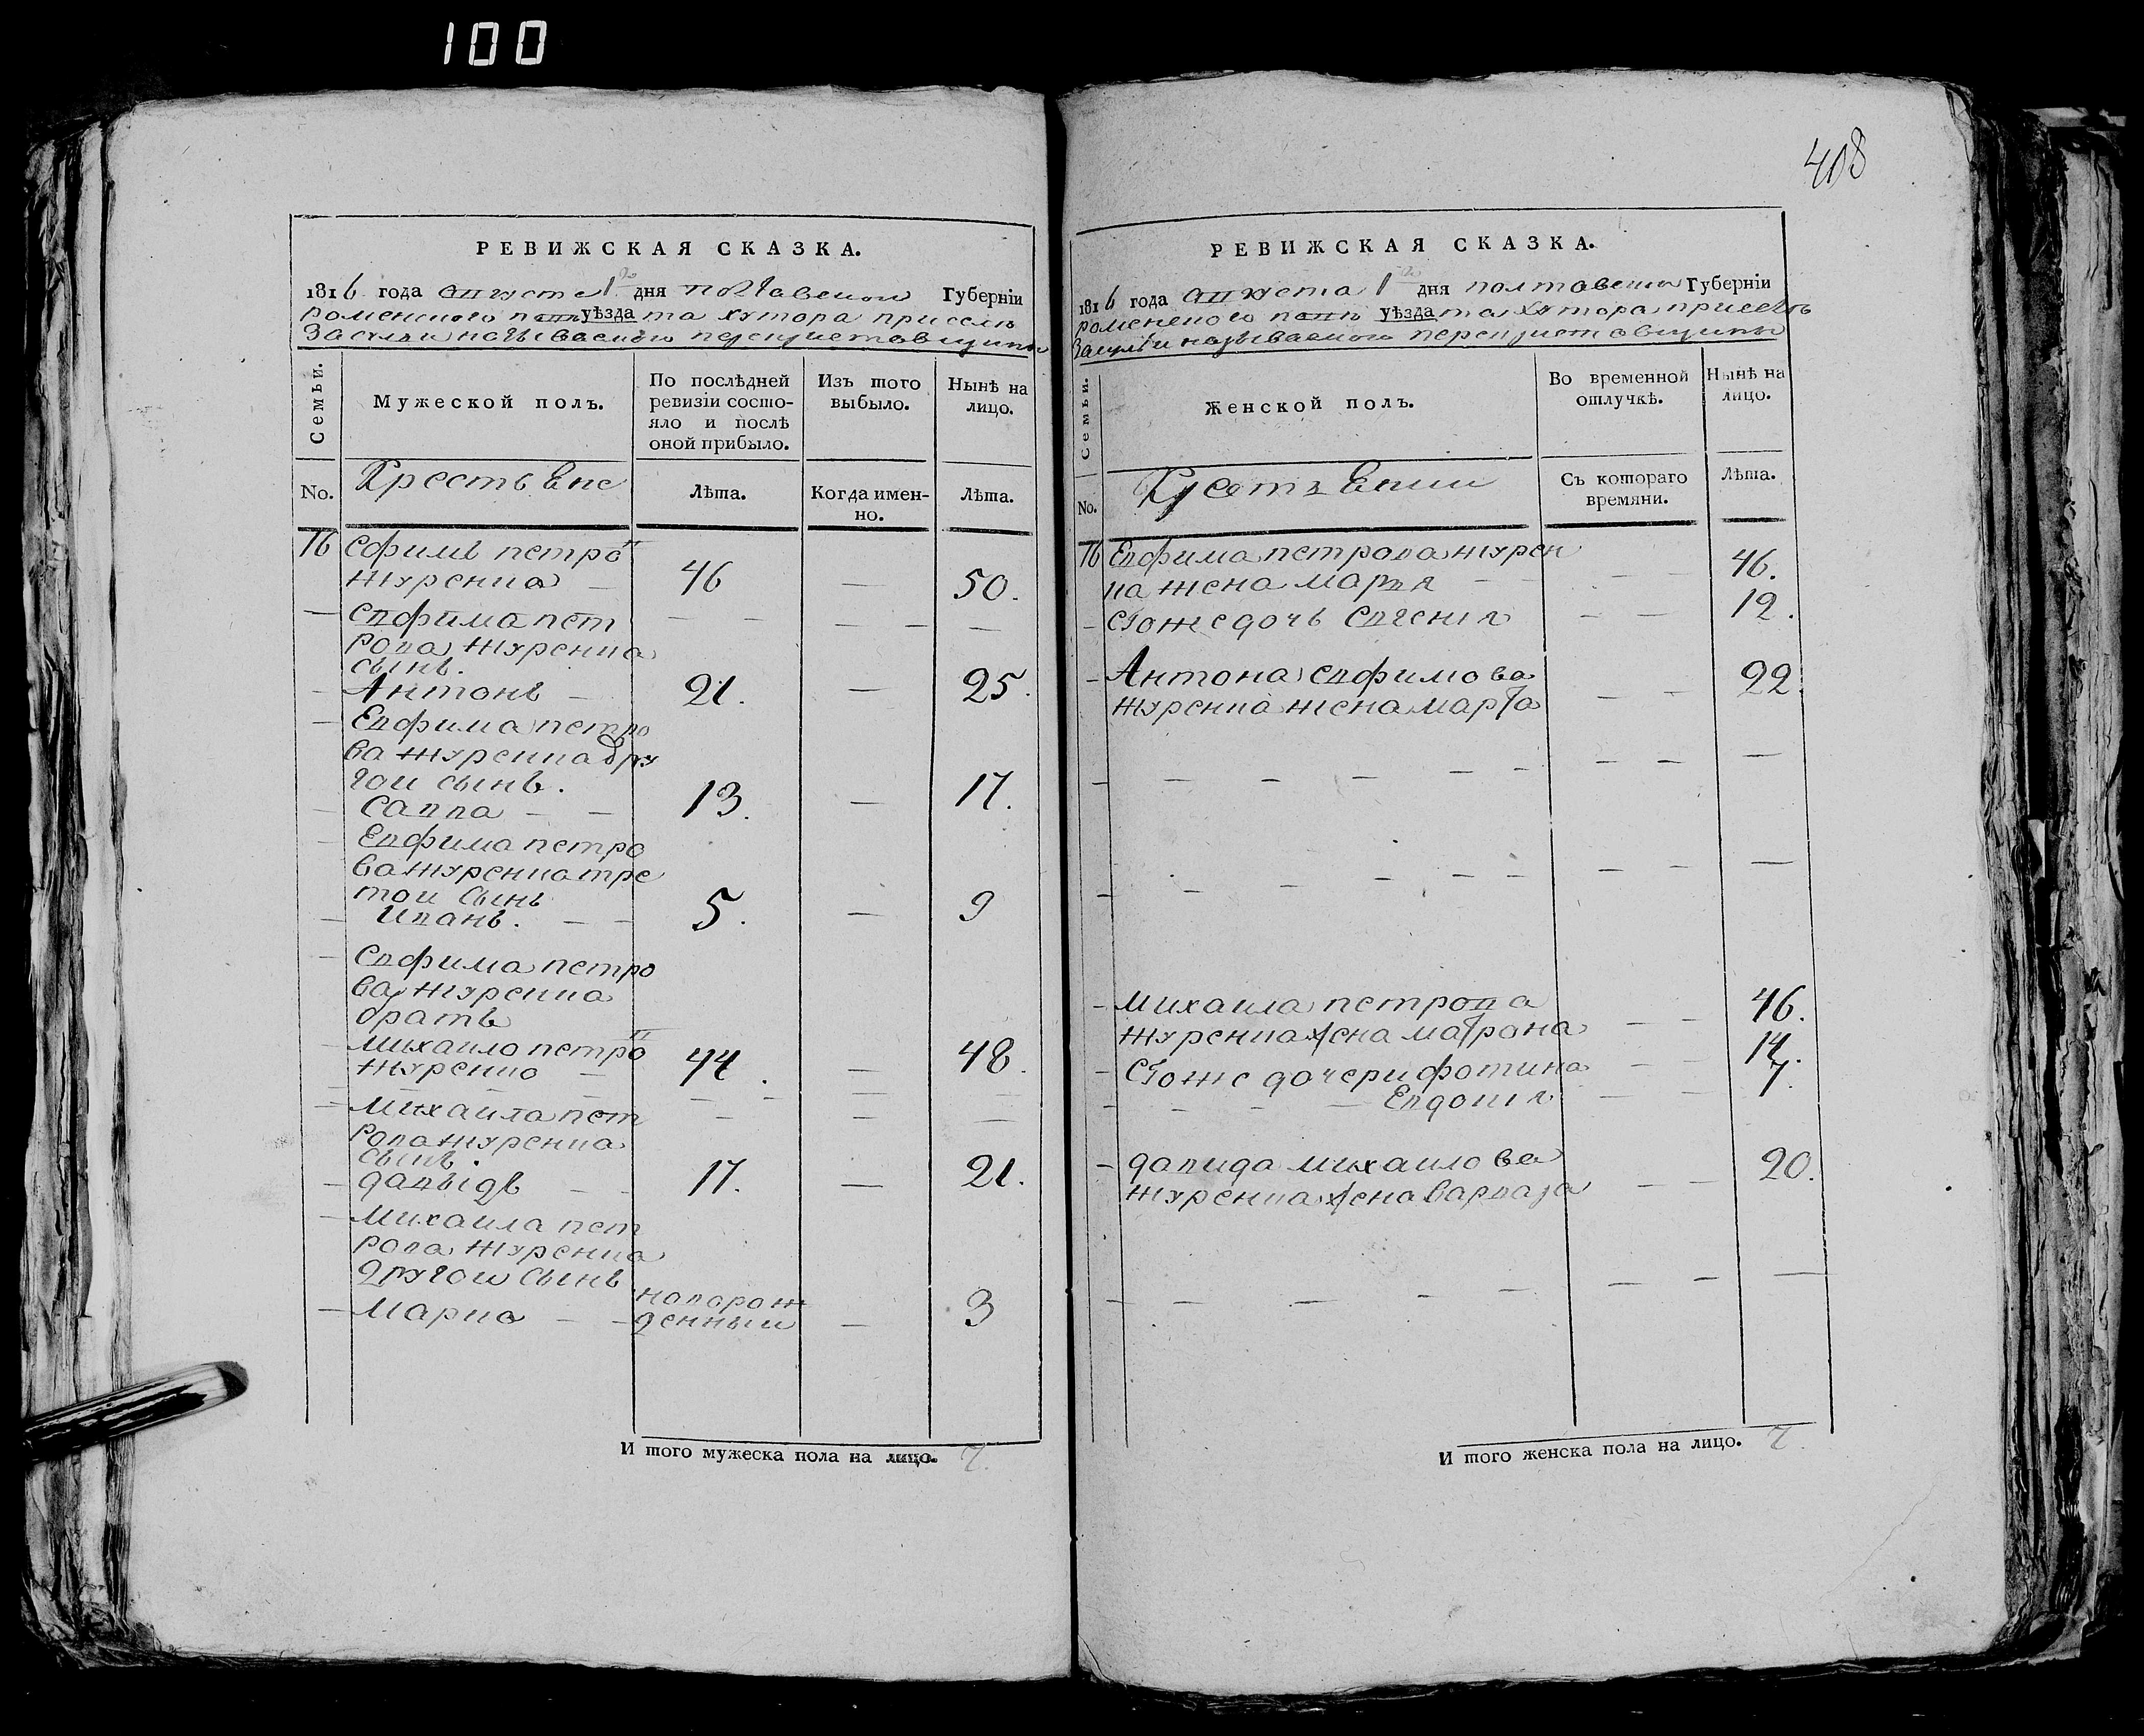 100
408
РЕВИЖСКАЯ СКАЗКА.
1816 года августа 1 дня полтавской Губерніи
роменского уѣзда хутора при селѣ
Засульи называемого
Семьи.
Мужеской полъ.
По послѣдней ревизіи состо-
яло и послѣ оной прибыло.
Изъ того выбыло.
Нынѣ на лицо.
No.
Крестьяне
Лѣта.
Когда имен-
но.
Лѣта.
16 Ефимъ петровъ
журенка — 46 — 50.
Евфима пет
рова журенка
сынъ.
Антонъ — 21. — 25.
Евфима петро
ва журенка дру
гои сынъ.
Савва — 13. — 17.
Евфима петро
ва журенка тре
тои сынъ
Иванъ. — 5. — 9
Евфима петро
ва журенка
братъ
Михаило петровъ
журенко — 44. — 48.
Михаила пет
рова журенка
сынъ.
давыдъ — 17. — 21.
Михаила пет
рова журенка
другои сынъ
Марко — новорож
денныи — 3
И того мужеска пола на лицо. 7.
РЕВИЖСКАЯ СКАЗКА.
1816 года августа 1 дня полтавской Губерніи
роменского уѣзда хутора при селѣ
Засульи называемого
Семьи.
Женской полъ.
Во временной отлучкѣ.
Нынѣ на лицо.
No.
Съ котораго времяни.
Лѣта.
16 Евфима петрова журен
ка жена марья — 46.
Егоже дочь Евгения — 12.
Антона евфимова
журенка жена марфа — 22.
Михаила петрова
журенка жена матрона — 46.
Егоже дочери фотина — 14.
Евдокия — 7.
давида михаилова
журенка жена варвара — 20.
И того женска пола на лицо. 7.